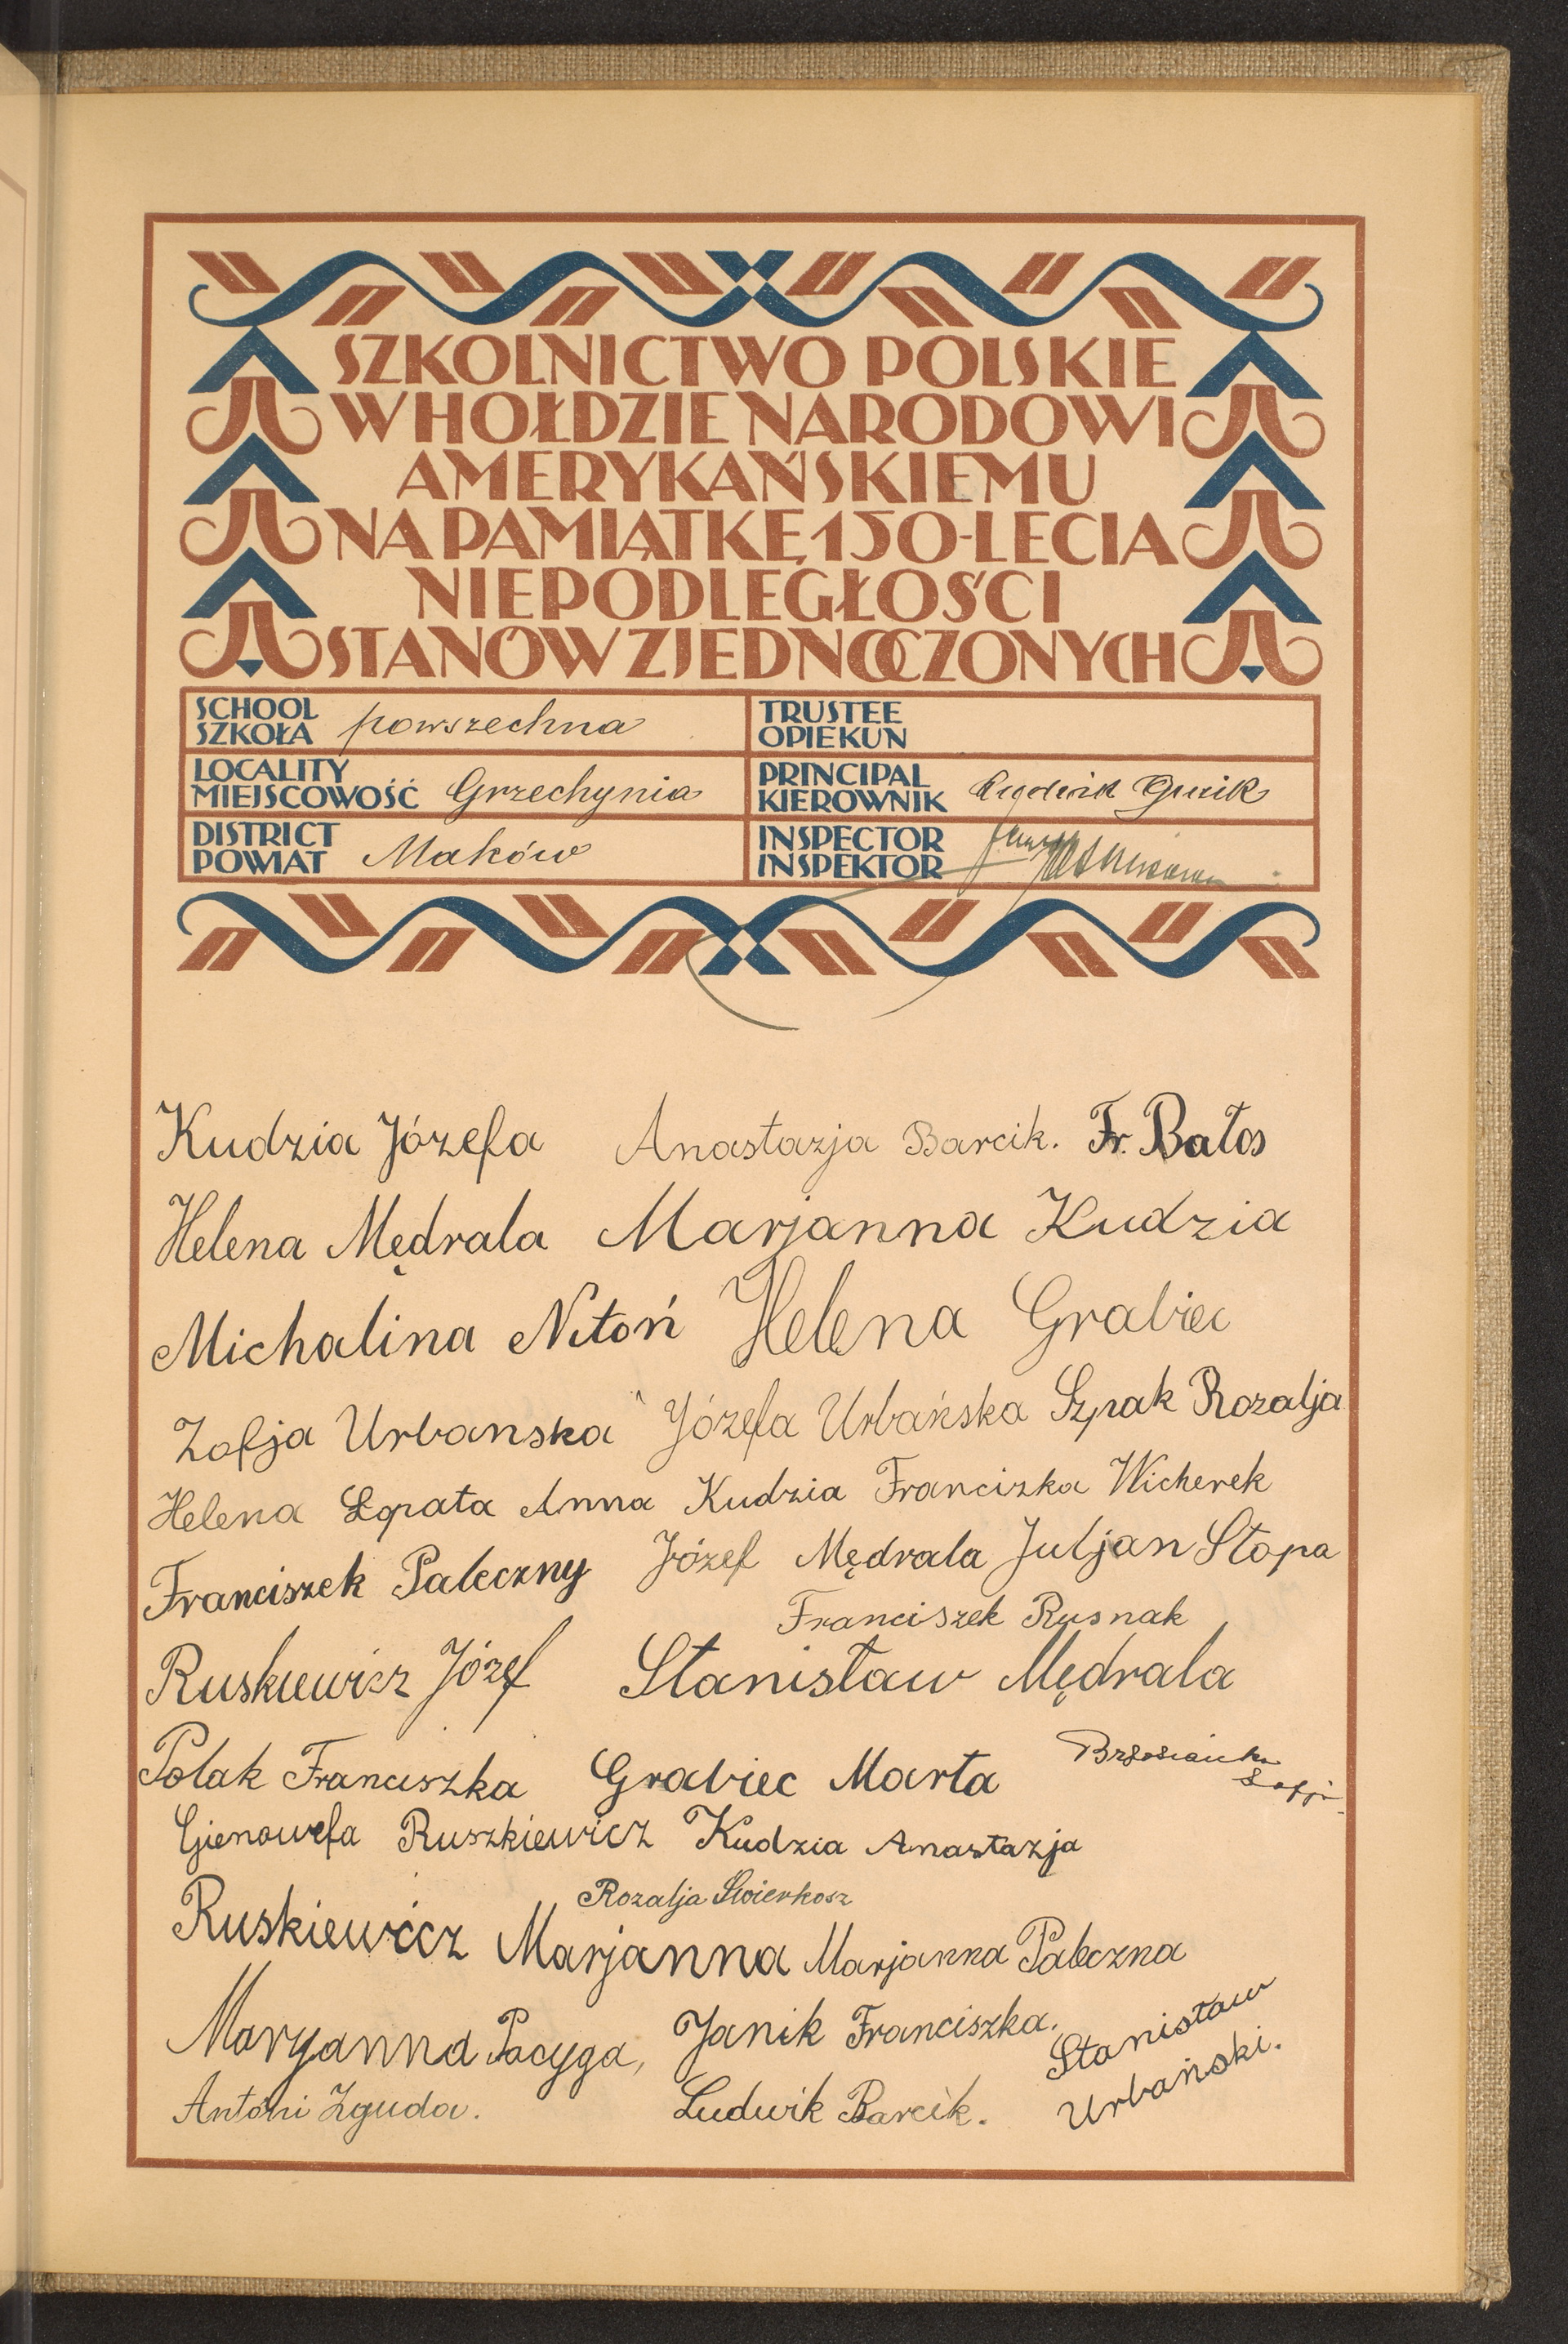 SZKOLNICTWO POLSKIE
W HOŁDZIE NARODOWI
AMERYKAŃSKIEMU
NA PAMIĄTKĘ 150-LECIA
NIEPODLEGŁOŚCI
STANÓW ZJEDNOCZONYCH
SCHOOL
SZKOŁA powszechna
TRUSTEE
OPIEKUN
LOCALITY
MIEJSCOWOŚĆ Grzechynia
PRINCIPAL
KIEROWNIK
DISTRICT
POWIAT Maków
INSPECTOR
INSPEKTOR
Kudzia Józefa Anastazja Barcik. Fr. Bałos
Helena Mędrala Marjanna Kudzia
Michalina Nitoń Helena Grabiec
Zofja Urbanska Józefa Urbańska Szpak Rozalja
Helena Łopata Anna Kudzia Francizka Wicherek
Franciszek Paleczny Józef Mędrala Juljan Stopa
Franciszek Rusnak
Ruskiewicz Józef Stanisław Mędrala
Polak Franciszka Grabiec Marta
Gienowefa Ruszkiewicz Kudzia Anastazja
Rozalja Świerkosz
Ruskiewicz Marjanna Marjanna Paleczna
Maryanna Pacyga, Janik Franciszka.
Stanisław
Urbański.
Antoni Zguda. Ludwik Barcik.